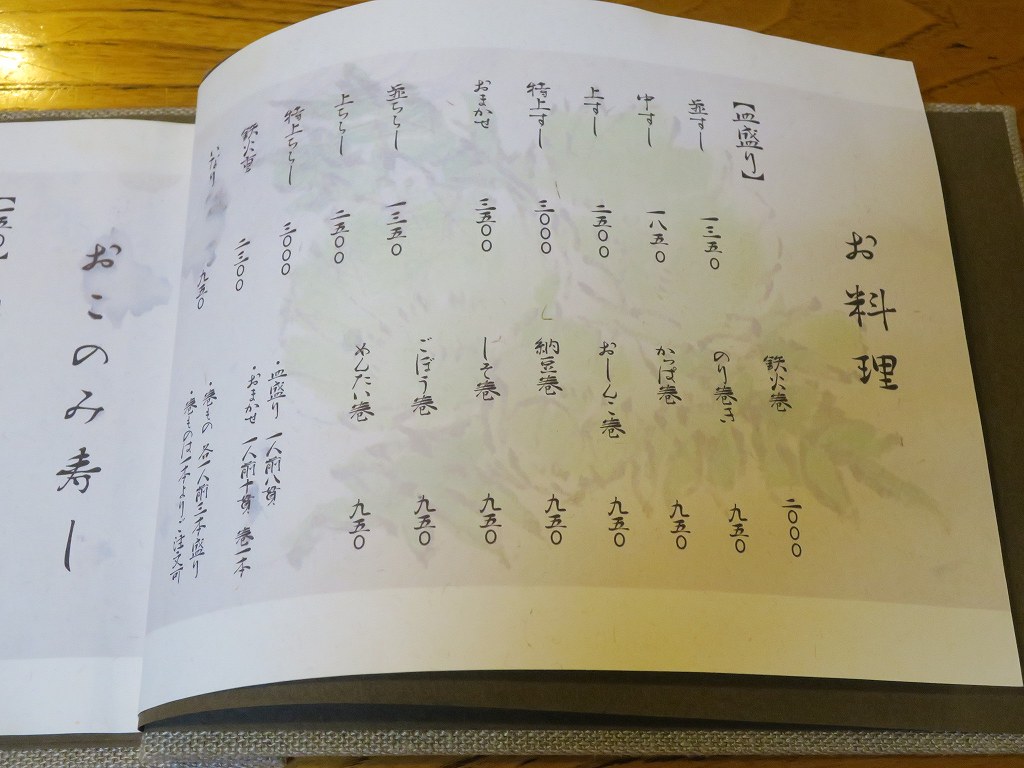 お料理
【皿盛り】
並すし 一三五〇
中すし 一八五〇
上すし 二五〇〇
特上すし 三〇〇〇
おまかせ 三五〇〇
並ちらし 一三五〇
上ちらし 二五〇〇
特上ちらし 三〇〇〇
鉄火重 二三〇〇
おなり 九五〇
鉄火巻 二〇〇〇
のり巻き 九五〇
かっぱ巻 九五〇
おしんこ巻 九五〇
納豆巻 九五〇
しそ巻 九五〇
ごぼう巻 九五〇
めんたい巻 九五〇
・皿盛り 一人前八貫
・おまかせ 一人前十貫 巻一本
・巻もの 各一人前三本盛り
・巻ものは一本よりご注文可
おこのみ寿し
【一五〇】